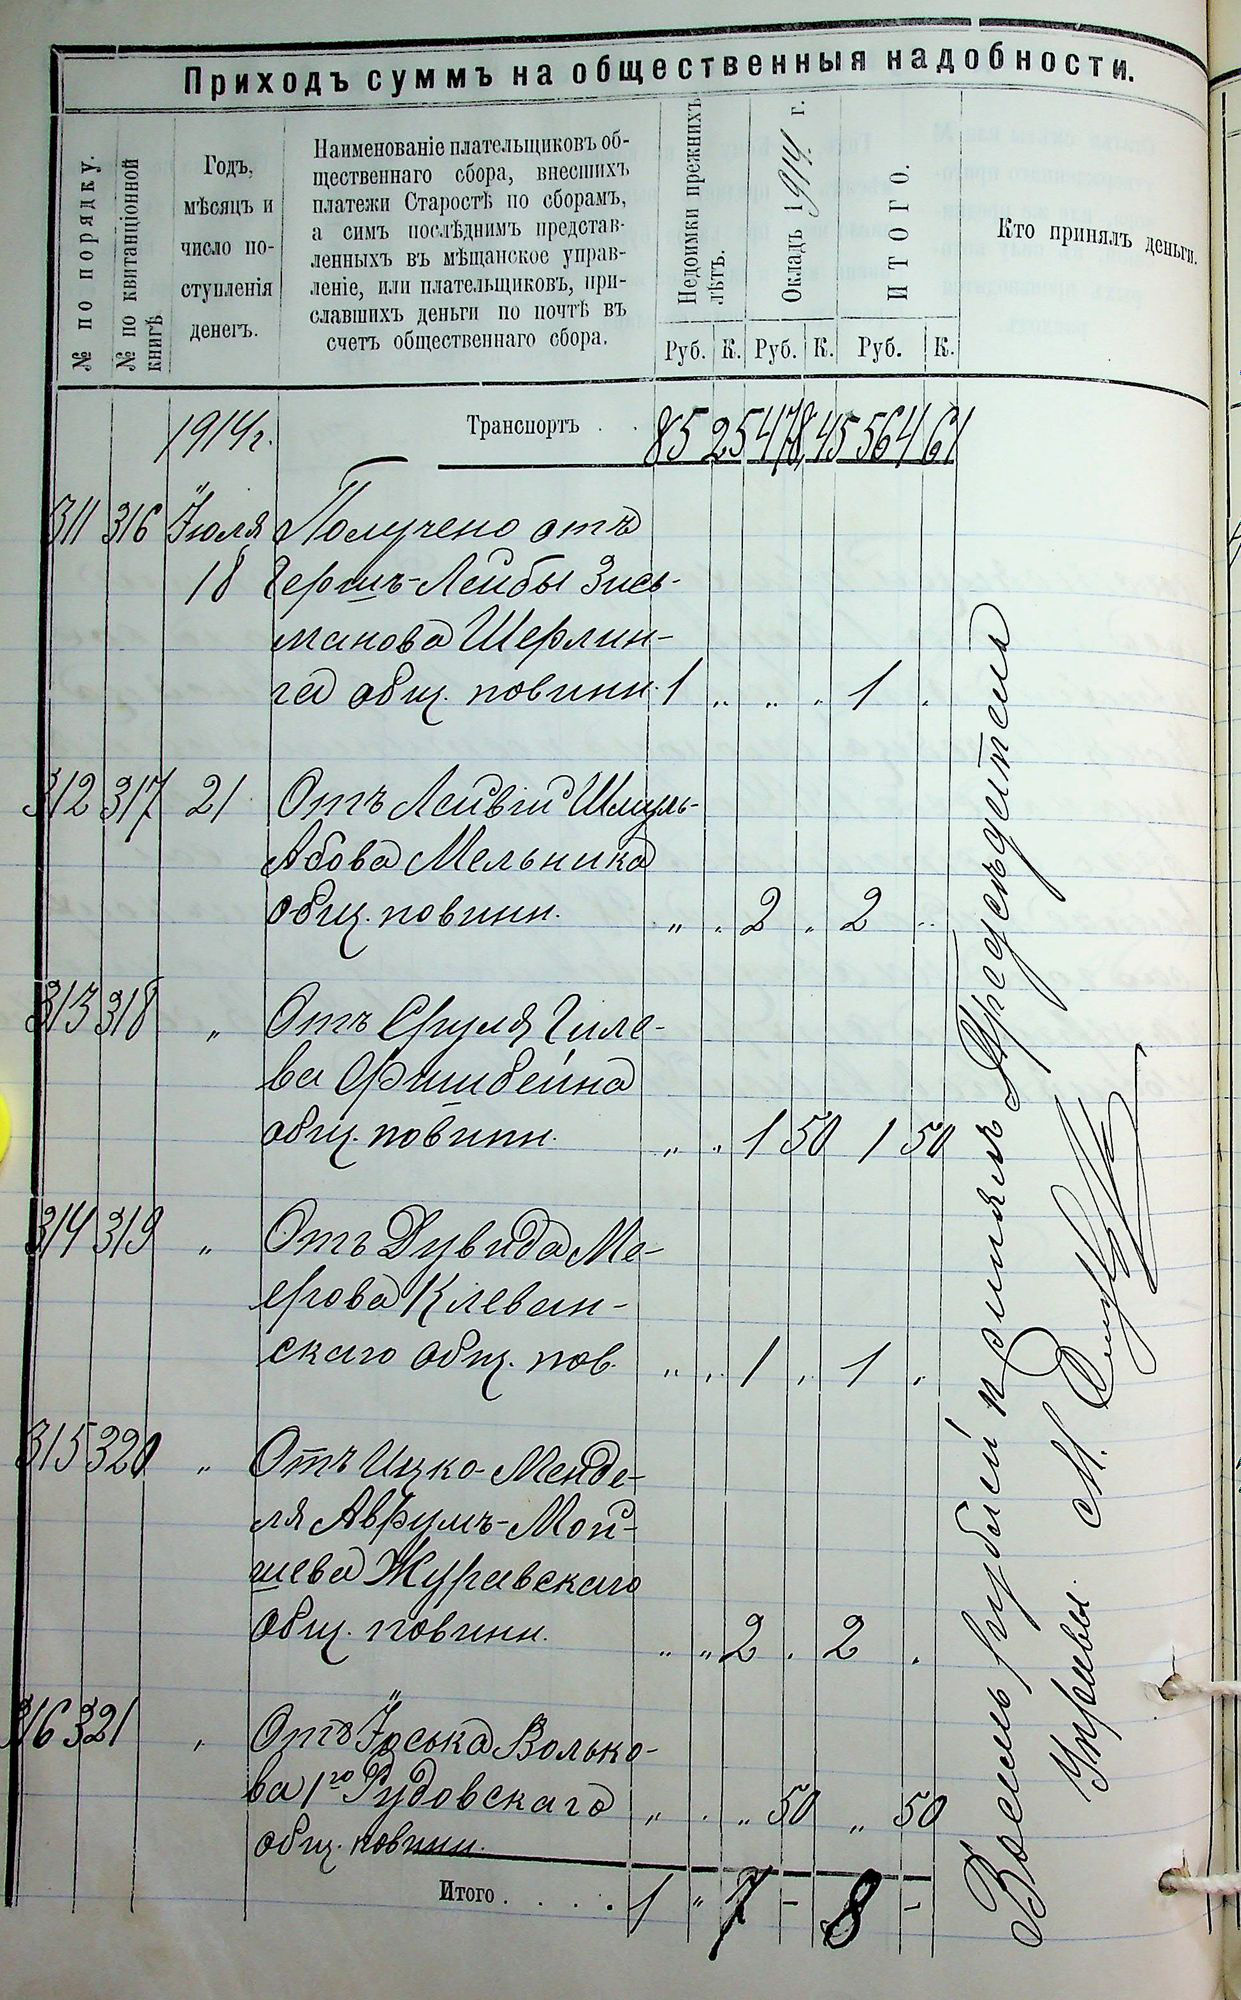 Приходъ суммъ на общественныя надобности.
№ по порядку.
№ по квитанціонной
книгѣ
Годъ,
мѣсяцъ и
число по-
ступленія
денегъ.
Наименованіе плательщиковъ об-
щественнаго сбора, внесшихъ
платежи Старостѣ по сборамъ,
а симъ послѣднимъ представ-
ленныхъ въ мѣщанское управ-
леніе, или плательщиковъ, при-
славшихъ деньги по почтѣ въ
счетъ общественнаго сбора.
Недоимки прежнихъ
лѣтъ.
Окладъ 1914 г.
ИТОГО.
Кто принялъ деньги.
Руб. К. Руб. К. Руб. К.
1914 г. Транспортъ . . 85 25 478 45 564 61
311 316 Іюля Получено отъ
18 Гершъ-Лейбы Зись-
манова Шерлин-
га общ. повинн. 1 „ „ „ 1 „
312 317 21 Отъ Лейвій Шмуль-
Абова Мельника
общ. повинн. „ „ 2 „ 2 „
313 318 „ Отъ Сруля Гиле-
ва Фишбейна
общ. повинн. „ „ 1 50 1 50
314 319 „ Отъ Дувида Ме-
ерова Клеван-
скаго общ. пов. „ „ 1 „ 1 „
315 320 „ Отъ Ицко-Менде-
ля Аврумъ-Мой-
шева Журавскаго
общ. повинн. „ „ 2 „ 2 „
316 321 „ Отъ Іоська Волько-
ва 1го Рудовскаго „ „ „ 50 „ 50
общ. повинн.
Итого . . . . 1 „ 7 – 8 –
Восемь рублей принялъ Предсѣдатель
Управы М.